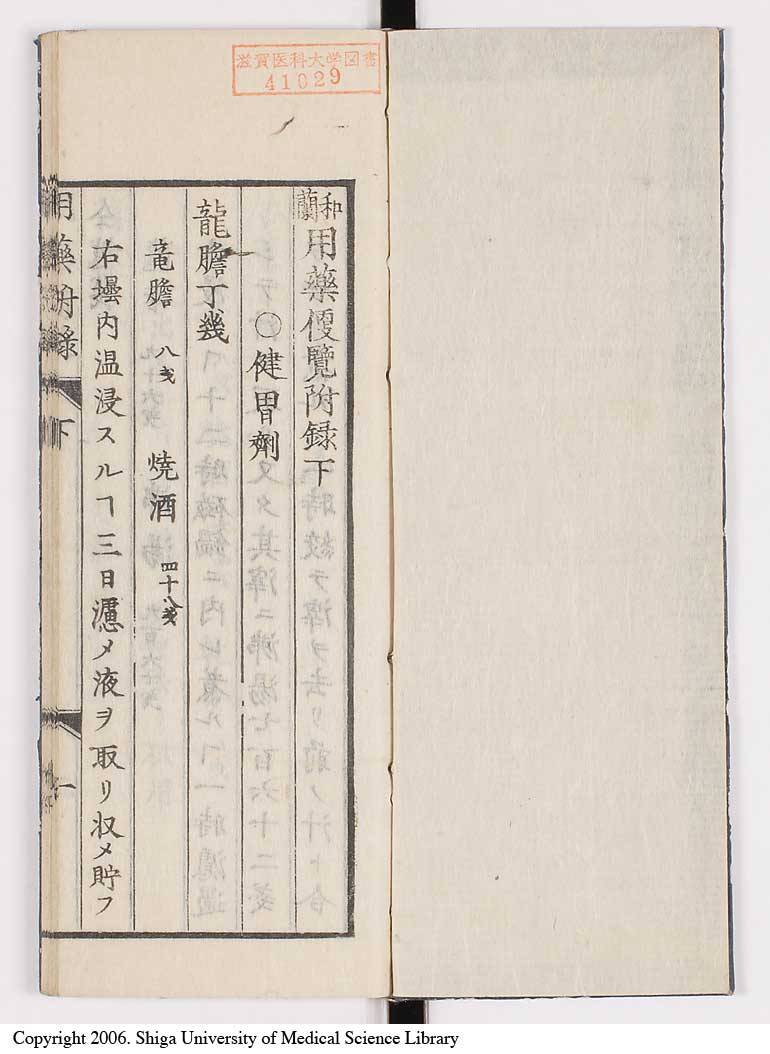 滋賀医科大学図書
41029
和蘭用藥便覽附録下
〇健胃劑
龍膽丁幾
竜膽 八戔 燒酒 四十八戔
右壜内温浸スルヿ三日濾メ液ヲ取リ収メ貯フ
用藥附録 下 一
Copyright 2006. Shiga University of Medical Science Library